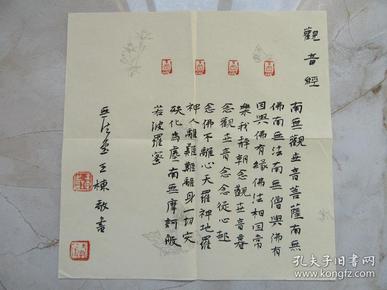 觀音經
南無觀世音菩薩南無
佛南無法南無僧與佛有
因與佛有緣佛法相因常
樂我靜朝念觀世音暮
念觀世音念念從心起
念佛不離心天羅神地羅
神人離難難離身一切灾
殃化為塵南無摩訶般
若波羅蜜
王棟敬書
孔夫子旧书网